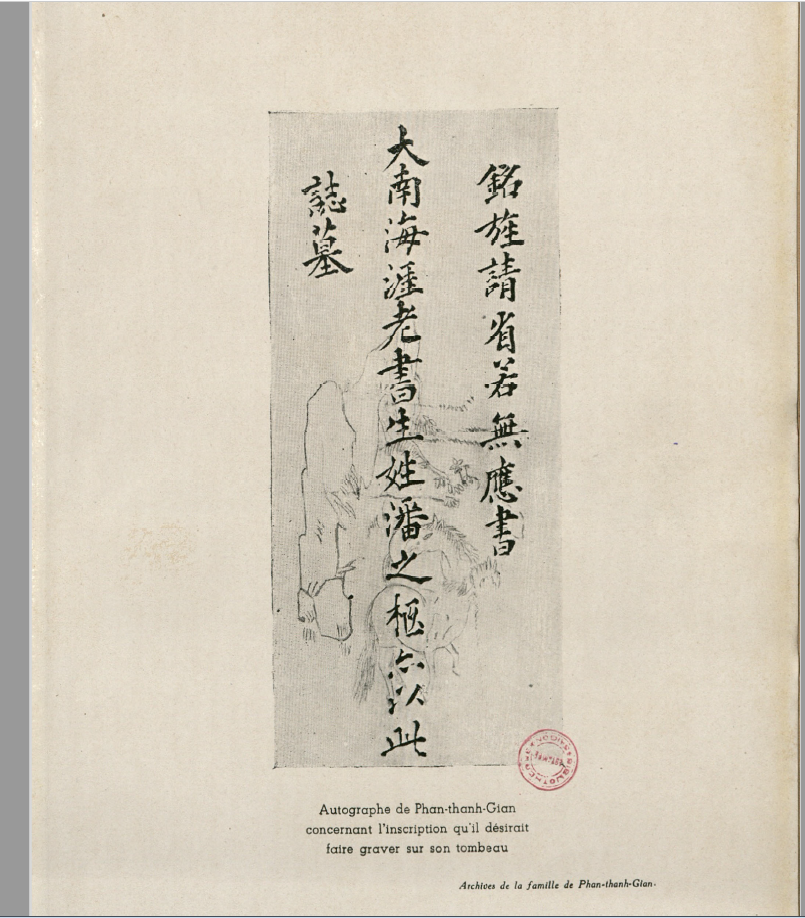 銘旌請省若無應書
大南海涯老書生姓潘之柩亦以此
誌墓
Autographe de Phan-thanh-Gian
concernant l'inscription qu'il désirait
faire graver sur son tombeau
Archives de la famille de Phan-thanh-Gian.